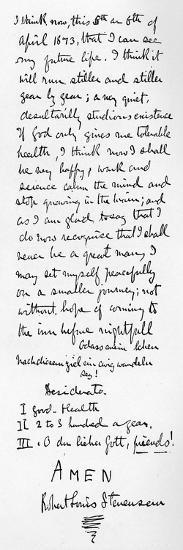 I think now, this 5th or 6th of
April 1873, that I can see
my future life. I think it
will run stiller and stiller
year by year; a very quiet,
desultorily studious existence
If God only gives me tolerable
health, I think now I shall
be very happy, work and
science calm the mind and
stop gnawing in the brain; and
as I am glad to say that I
do now recognise that I shall
never be a great man, I
may set myself peacefully
on a smaller journey; not
without hope of coming to
the inn before nightfall
O dass mein leben
nach diesem ziel ein ewig wandeln
sey!
Desiderata.
I Good-Health
II 2 to 3 hundred a year.
III. O du lieber Gott, friends!
AMEN
Robert Louis Stevenson